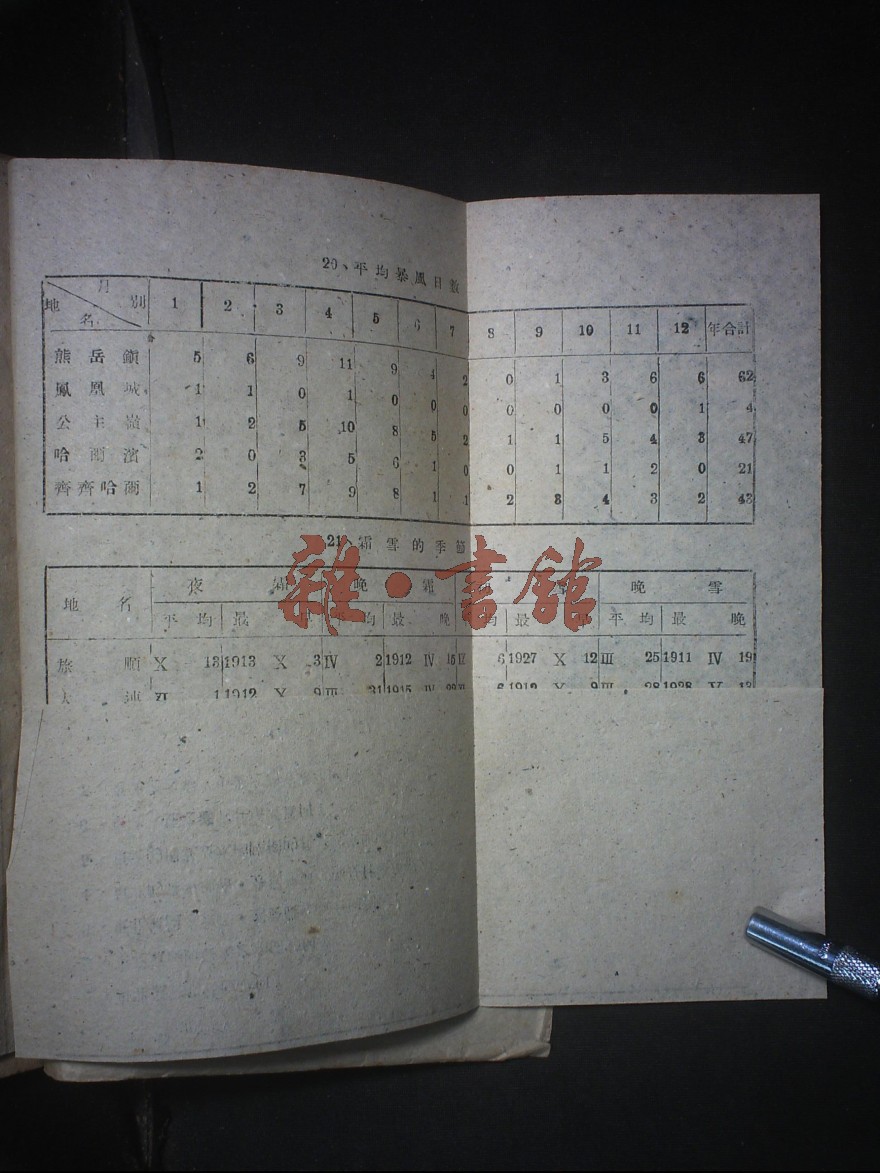 20、平均暴風日數
月別 地名 1 2 3 4 5 6 7 8 9 10 11 12 年合計
熊岳鎭 5 6 9 11 9 4 2 0 1 3 6 6 62
鳳凰城 1 1 0 1 0 0 0 0 0 0 0 1 4
公主嶺 1 2 5 10 8 5 2 1 1 5 4 3 47
哈爾濱 2 0 3 5 6 1 0 0 1 1 2 0 21
齊齊哈爾 1 2 7 9 8 1 1 2 3 4 3 2 43
21、霜雪的季節
地名 霜 晚霜 晚雪
平均 最 均 最晚 均 最 平均 最晚
旅順 X 13 1913 X 3 IV 2 1912 IV 15 6 1927 X 12 III 25 1911 IV 19
1 1912 X 9 III 31 1915 IV 6 1912 X 9 III 28 1928 V 13
雜·書館